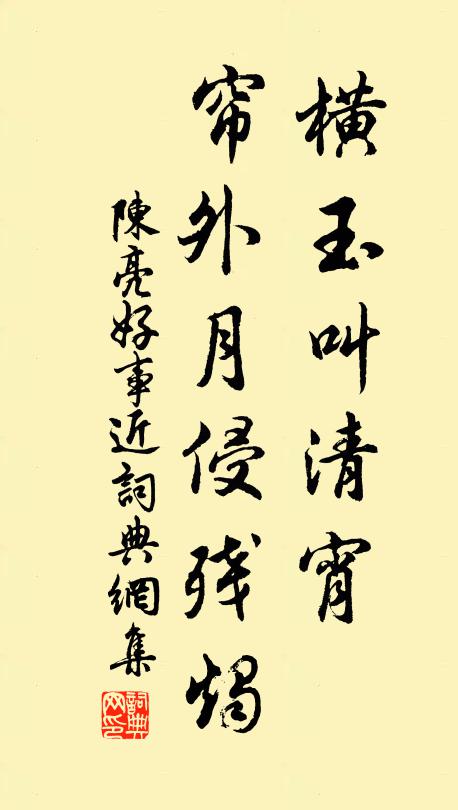 横玉叫清宵
帘外月侵残烛
陳亮好事近詞典網集
詞典网印